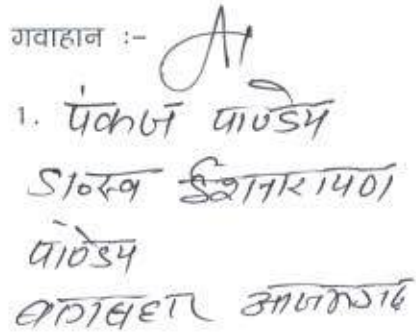 गवाहान :-
1. पंकज पाण्डेय
S/०स्व ईशनारायण
पाण्डेय
आजमगढ़